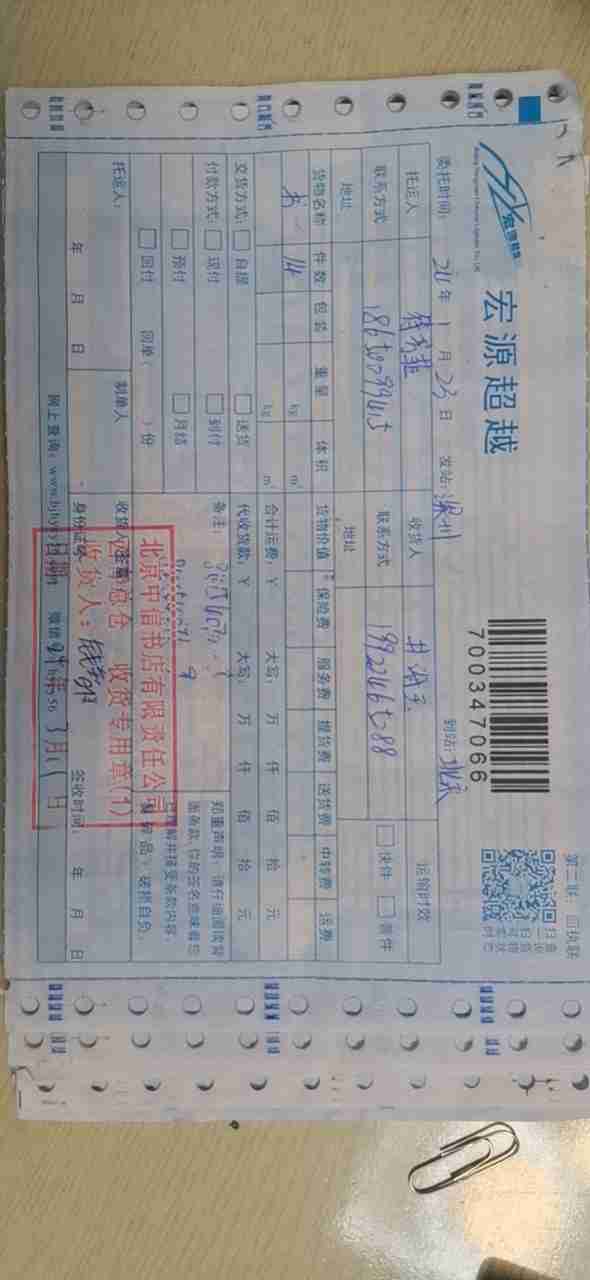 宏源超越
700347066
第二联：回执联
委托时间： 24年 1月 23日 发站：深圳 到站：北京
托运人 收货人 运输时效
联系方式 18650799415 联系方式 19922465088 快件 普件
地址 地址
货物名称 件数 包装 重量 体积 货物价值 保险费 服务费 提货费 送货费 中转费 运费
书 14 kg m³
kg m³ 合计运费：￥ 大写： 万 仟 佰 拾 元
交货方式： 自提 送货 代收货款：￥ 大写： 万 仟 佰 拾 元
付款方式： 现付 到付 备注：
预付 月结
回付 回单（ ）份
郑重声明：请仔细阅读背
面条款，您的签名意味着您
理解并接受条款内容。
易碎品、破损自负。
托运人： 制单人 收货人
年 月 日 身份证 签收时间： 年 月 日
北京中信书店有限责任公司
总仓 收货专用章(1)
收货人：
日期 年 月 日
网上查询：www.bjhy